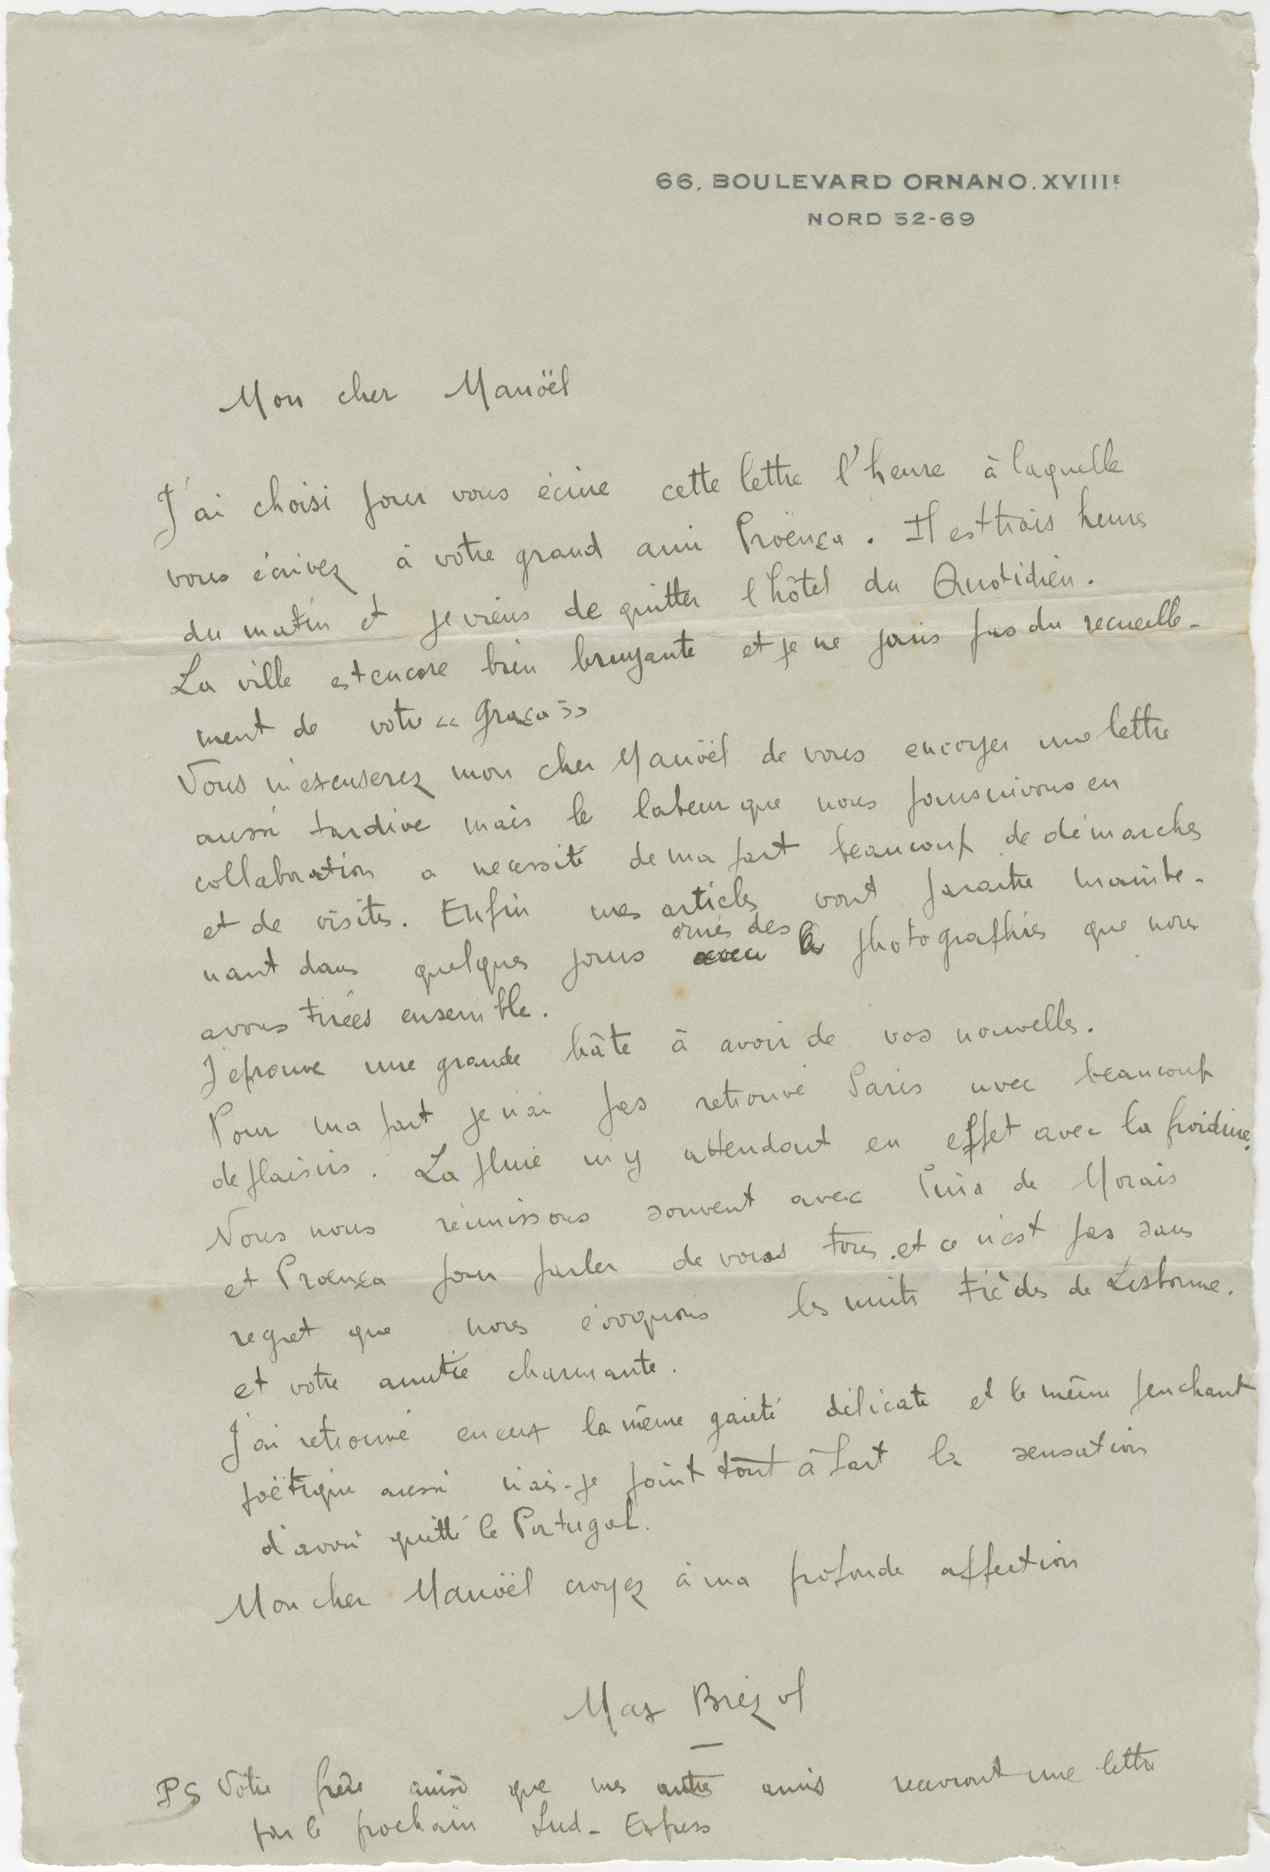 66, BOULEVARD ORNANO. XVIIIE
NORD 52-69
Mon cher Manoël
J'ai choisi pour vous écrire cette lettre l'heure à laquelle
vous écrivez à votre grand ami Proënça. Il est trois heures
du matin et je viens de quitter l'hôtel du Quotidien.
La ville est encore bien bruyante et je ne jouis pas du recueille-
ment de votre « Graça »
Vous m'excuserez mon cher Manoël de vous envoyer une lettre
aussi tardive mais le labeur que nous poursuivons en
collaboration a necessité de ma part beaucoup de démarches
et de visites. Enfin mes articles vont paraitre mainte-
nant dans quelques jours ornés des photographies que nous
avons tirées ensemble.
J'éprouve une grande hâte à avoir de vos nouvelles.
Pour ma part je n'ai pas retrouvé Paris avec beaucoup
de plaisirs. La pluie m'y attendait en effet avec la froidure.
Nous nous réunissons souvent avec de Morais
et Proença pour parler de vous tous et ce n'est pas sans
regret que nous évoquons les nuits tièdes de Lisbonne.
et votre amitié charmante.
J'ai retrouvé en eux la même gaieté délicate et le même penchant
poëtique aussi n'ai-je point tout à fait la sensation
d'avoir quitté le Portugal.
Mon cher Manoël croyez à ma profonde affection
Max Brézol
PS Votre frère ainsi que mes autres amis recevront une lettre
par le prochain Sud-Express